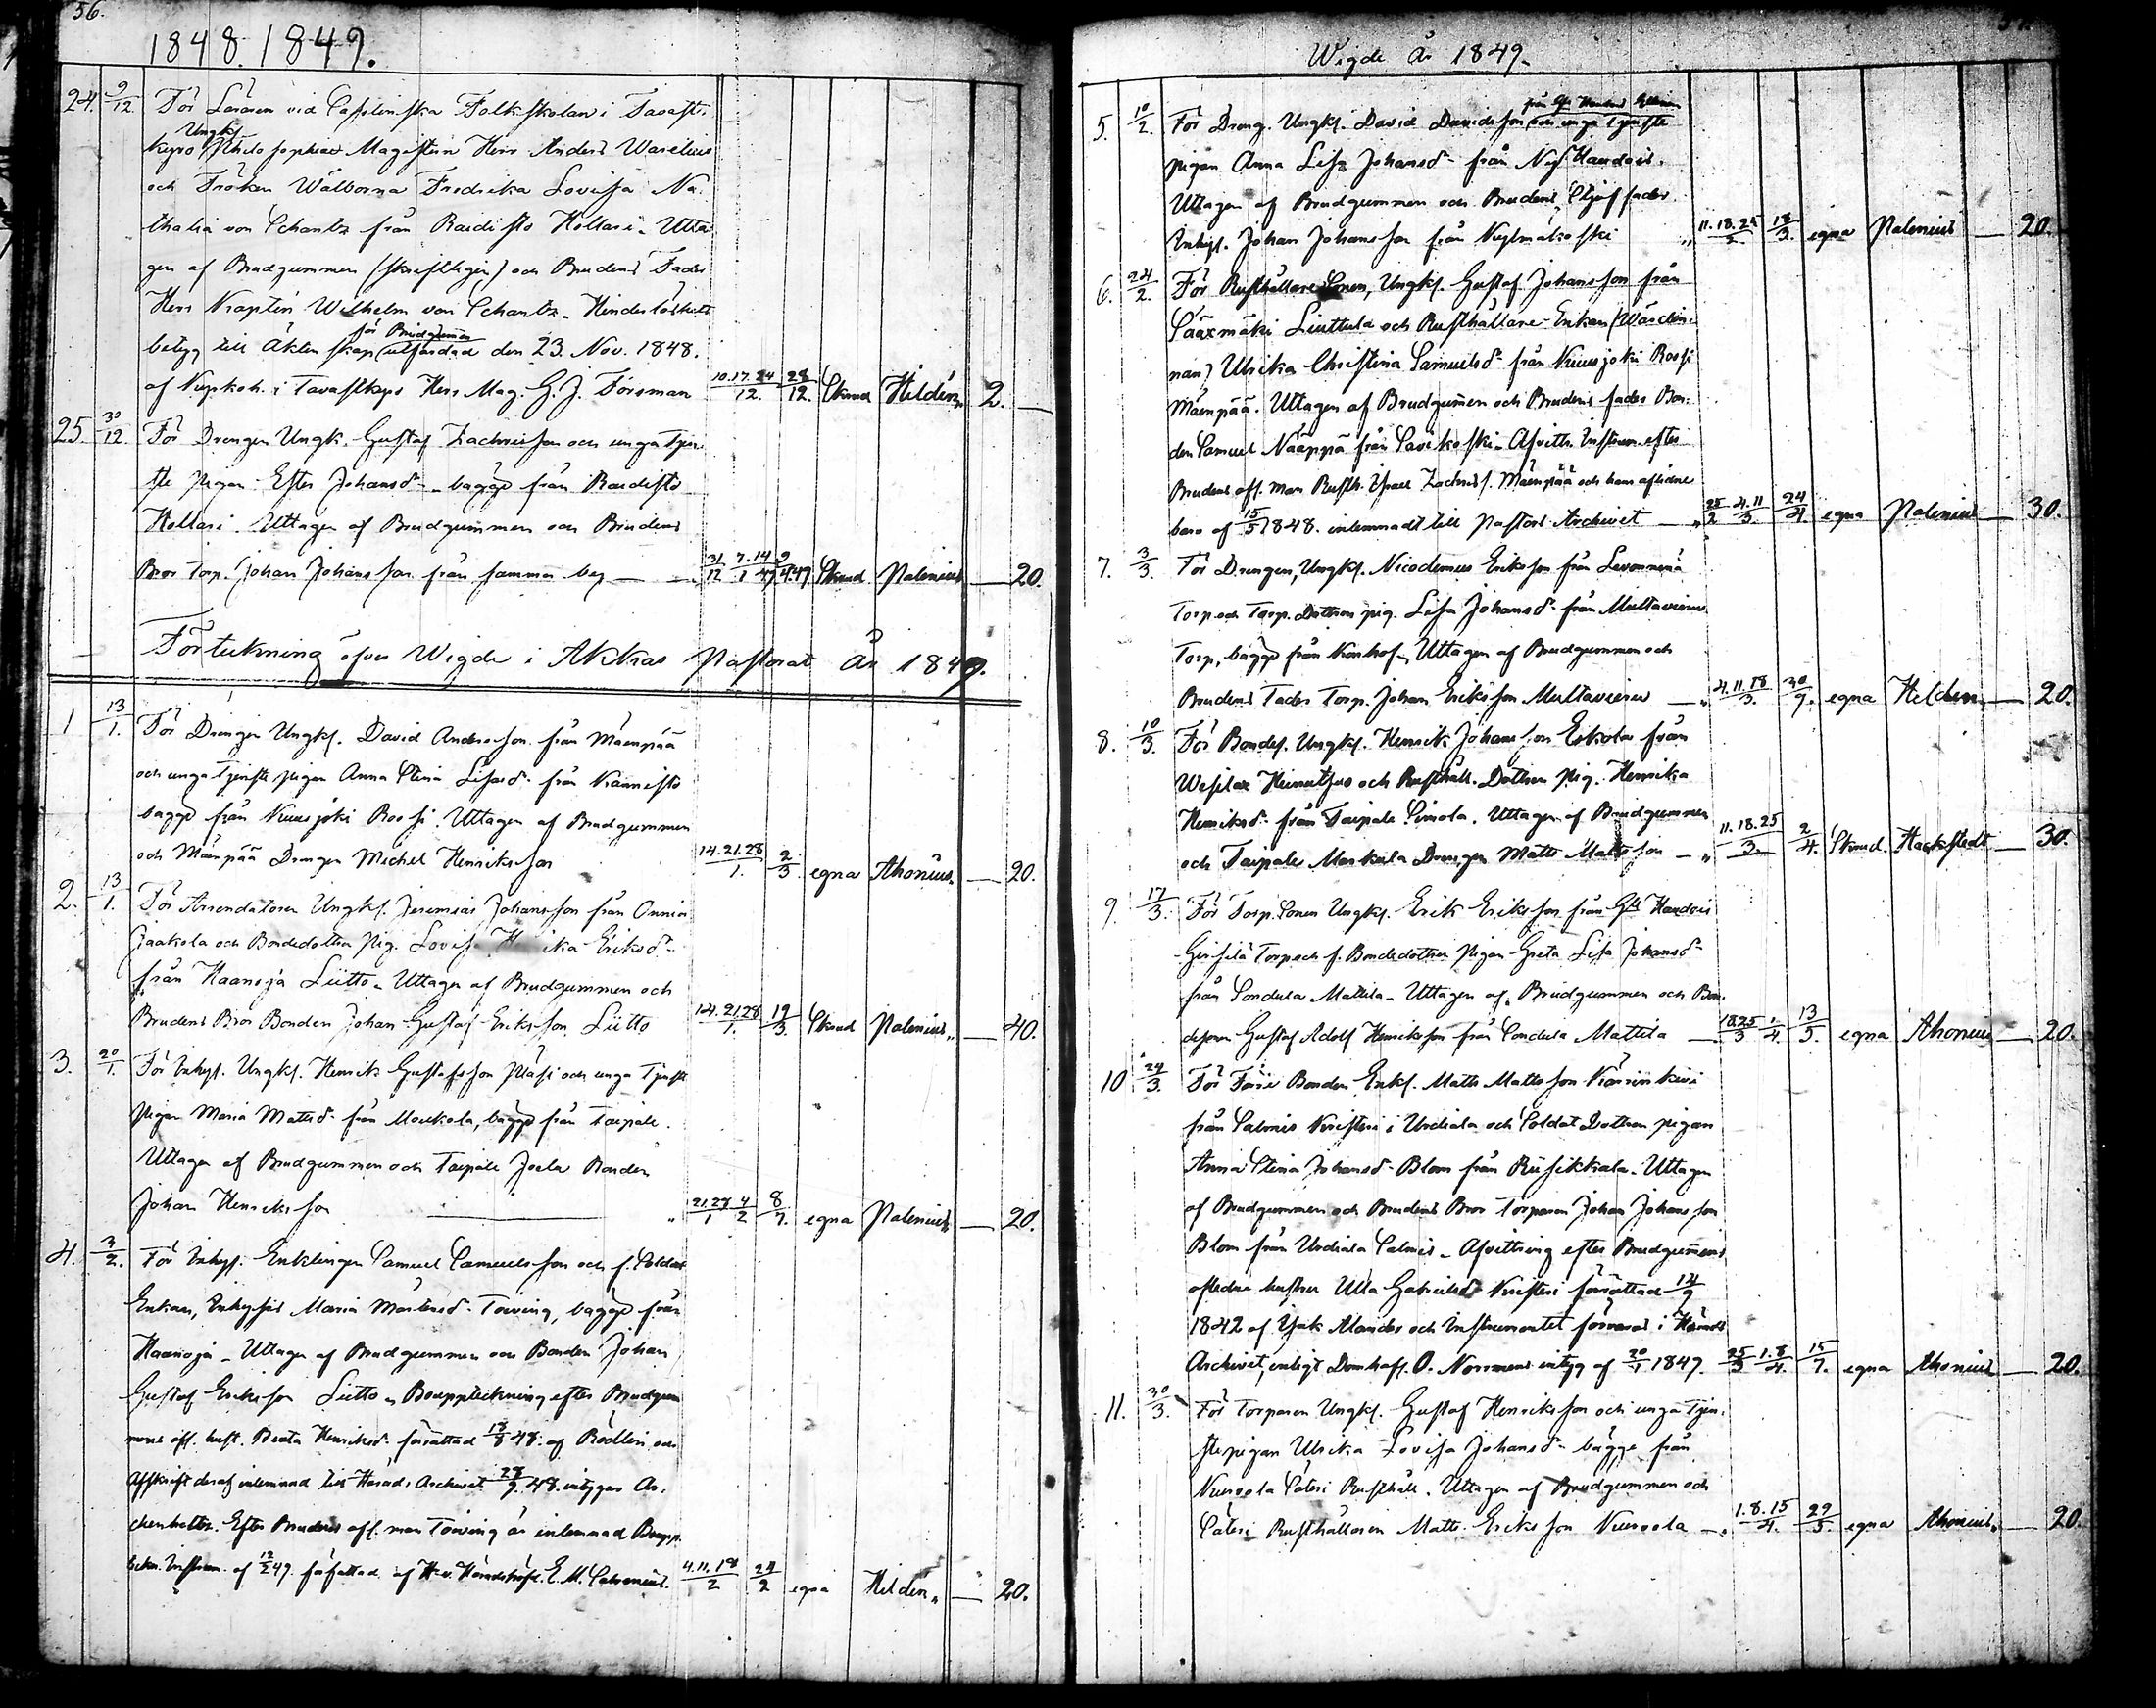 56.
1848. 1849.
24. 9/12 För Läraren vid Casselinska Folkskolan i Tavast-
Ungk.
kyro Philosophiae Magistern Herr Anders Warelius
och Fröken Wälborna Fredrika Lovisa Na-
thalia von Schantz från Raudisto Hollari. Utta
gen af Brudgummen (skriftligen) och Brudens Fader
Herr Kapten Wilhelm von Schantz. Hinderlöshets
för Brudgummen
betyg till Äktenskap utfärdad den 23. Nov. 1848.
af Kyrkoh. i Tavastkyro Herr Mag. G. J. Forsman 10.17.24/12. 28/12. Skrud Hildén " 2. —
25. 30/12 För Drengen Ungk. Gustaf Zachrisson och unga Tjen-
ste pigan Ester Johansdr bägge från Raudisto
Hollari. Uttagen af Brudgummen och Brudens
Bror Torp. Johan Johansson från samma by — 31/12 7.14/1 49 9/4 49 Skrud Palenius — 20.
Förteckning öfver Wigde i Akkas Pastorat År 1849.
1 13/1. För Drengen Ungk. David Andersson från Mäenpää
och unga Tjenste pigan Anna Stina Lisasdr från Kannisto
bägge från Kuusjoki Rossi. Uttagen af Brudgummen
och Mäenpää Drengen Michel Henriksson 14.21.28/1. 2/3 egna Ahonius " — 20.
2. 13/1. För Arrendatoren Ungk. Jeremias Johansson från Annia
Jaakola och Bondedottren Pig. Lovisa Eriksdr
från Haanoja Liitto. Uttagen af Brudgummen och
Brudens Bror Bonden Johan Gustaf Eriksson Liitto 14.21.28/1. 19/3. Skrud Palenius " — 40.
3. 20/1. För Inhys. Ungk. Henrik Gustafsson Pläsi och unga Tjenste
Pigan Maria Mattsdr från Maukola, bägge från Taipale.
Uttagen af Brudgummen och Taipale Bonden
Johan Henriksson — " 21.27/1 4/2 8/7. egna Palenius " — 20.
4. 3/2. För Inhys. Enklingen Samuel Samuelsson och f. Soldat
Enkan, Inhyses Maria Mårtensdr Torving, bägge från
Haanoja. Uttagen af Brudgummen och Bonden Johan
Gustaf Eriksson Liitto. Bouppteckning efter Brudgum
mens afl. hust. Beata Henriksdr författad 13/8 48. af Rodlin och
Afskrift deraf inlemnad till Härads Archivet 28/9 48. intygar
Efter Brudens afl. man Torving är inlemnad Boupp-
af 12/2 49. författad af H.v. Häradshöfd. E. M. 4.11.18/2 24/2 egna Hildén " — 20.
Wigde År 1849.
5. 10/2. För Dreng. Ungk. David Davidsson och unga Tjenste
pigan Anna Lisa Johansdr från Nyss Handois.
Uttagen af Brudgummen och Brudens Stjuffader
Inhys. Johan Johansson från " 11.18.25/2. 18/3. egna Palenius — 20.
6. 24/2. För Rusthållare Sonen, Ungk. Gustaf Johansson från
Sääxmäki Liuttula och Rusthållare-Enkan (Wärdin-
nan) Ulrika Christina Samuelsdr från Kuusjoki Rossi
Mäenpää. Uttagen af Brudgummen och Brudens fader Bon-
den Samuel Nääppä från Savikoski. Afvittr. Instrum. efter
Brudens afl. man Rusth. Isaac Zachriss. Mäenpää och hans aflidne
barn af 15/5 1848. inlemnadt till Pastors Archivet — " 25/2 4.11/3. 24/4 egna Palenius — 30.
7. 3/3. För Drengen, Ungk. Nicodemus Eriksson från
Torp och Torp. Dottren pig. Lisa Johansdr från Multavieru
Torp, bägge från Uttagen af Brudgummen och
Brudens Fader Torp. Johan Eriksson Multavieru — " 4.11.18/3. 30/9. egna Hildén — 20.
8. 10/3. För Bondes. Ungk. Henrik Johansson Eskola från
Wesilax och Rusthåll. Dottren Pig. Henrika
Henriksdr från Taipale Simola. Uttagen af Brudgummen
och Taipale Maukula Drengen Matts Mattsson — " 11.18.25/3. 2/4. Skrud. Hackstedt — 30.
9 17/3. För Torp. Sonen Ungk. Erik Eriksson från Gls Handois
Torp och f. Bondedottren Pigan Greta Lisa Johansdr
från Sondula Mattila. Uttagen af Brudgummen och Bon-
desonen Gustaf Adolf Henriksson från Sondula Mattila — 18.25/3 1/4. 13/5. egna Ahonius — 20.
10 24/3. För Förre Bonden Enkl. Matts Mattsson
från Salmis Kristeri i Urdiala och Soldat Dottren pigan
Anna Stina Johansdr Blom från Riisikkala. Uttagen
af Brudgummen och Brudens Bror Torparen Johan Johansson
Blom från Urdiala Salmis. Afvittring efter Brudgummens
aflidna hustru Ulla Gabrielsdr Kristeri författad 14/9
1842 af Isak Alander och Instrumentet förvaras i Härads
Archivet, enligt Domhaf. O. Norrmens intyg af 20/1 1849. 25/3 1.8/4. 15/7. egna Ahonius — 20.
11. 30/3. För Torparen Ungk. Gustaf Henriksson och unga Tjen-
stepigan Ulrika Lovisa Johansdr bägge från
Nuoroola Säteri Rusthåll. Uttagen af Brudgummen och
Säteri Rusthållaren Matts Eriksson Nuoroola — " 1.8.15/4. 29/5. egna Ahonius " — 20.